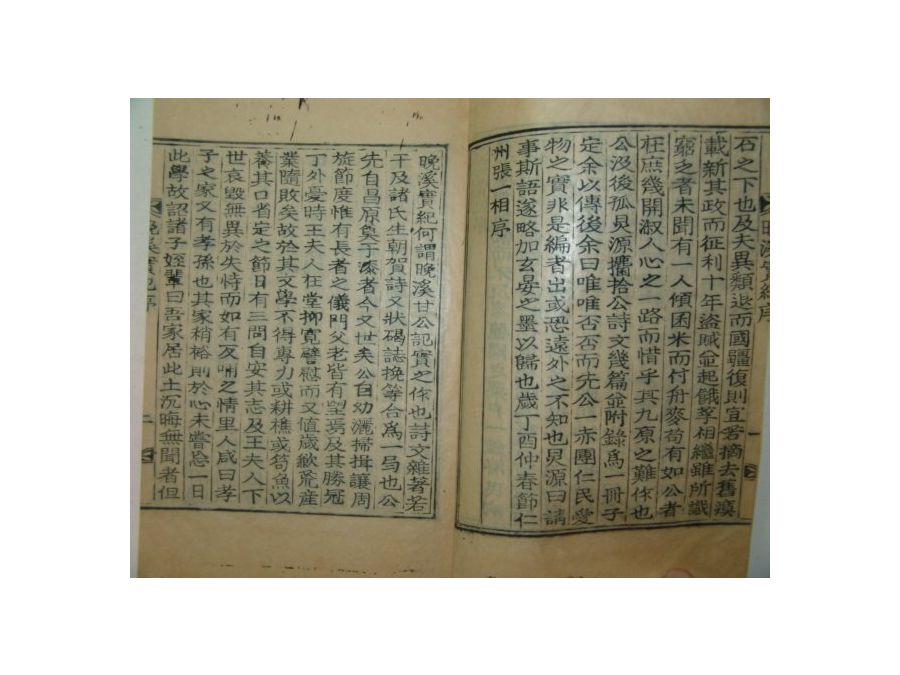 石之下也及夫異類退而國疆復則宜若摘去舊瘼
載新其政而征利十年盜賊愈起餓莩相繼雖所識
窮之者未聞有一人傾囷米而付舟麥苟有如公者
枉庶幾開淑人心之一路而惜乎其九原之難作也
公沒後孤見源攟拾公詩文幾篇並附錄爲一冊子
定余以傳後余曰唯唯否否而先公一赤團仁民愛
物之實非是編者出或恐遠外之不知也見源曰請
事斯語遂略加玄晏之墨以歸也歲丁酉仲春節仁
州張一相序
晚溪實紀序
一
晚溪實紀何謂晚溪甘公記實之作也詩文雜著若
干及諸氏生朝賀詩又狀碣誌挽等合爲一局也公
先自昌原奠于漆者今又世矣公自幼灑掃揖讓周
旋節度惟有長者之儀門父老皆有望焉及其勝冠
丁外憂時王夫人在堂抑寬譬慰而又値歲歉荒産
業隨敗矣故於其文學不得專力或耕樵或笱魚以
養其口省定之節日有三問自安其志及王夫人下
世哀毀無異於失恃而如有反哺之情里人咸曰孝
子之家又有孝孫也其家稍裕則於心未嘗忘一日
此學故認諸子姪輩曰吾家居此土沉晦無聞者但
晚溪實紀序
二